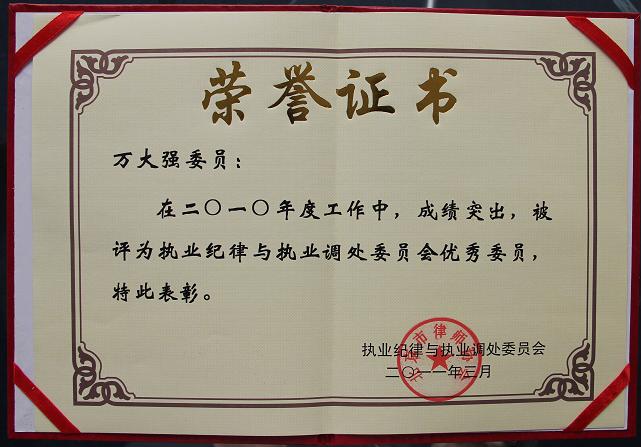 荣誉证书
万大强委员：
在二〇一〇年度工作中，成绩突出，被
评为执业纪律与执业调处委员会优秀委员，
特此表彰。
执业纪律与执业调处委员会
二〇一一年三月
北京市律师协会